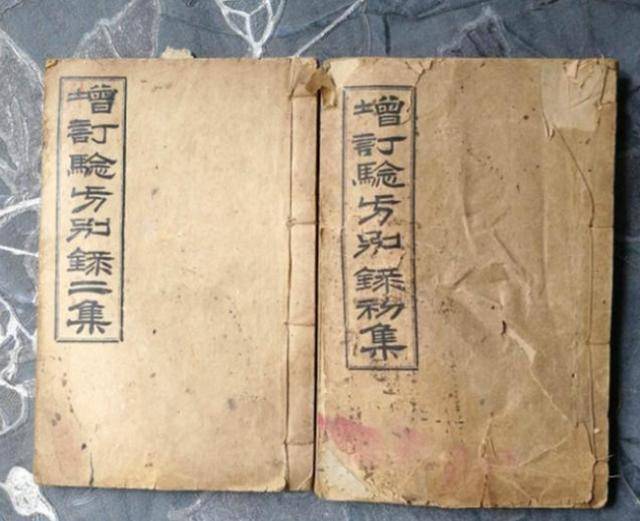 增訂驗方別錄初集
增訂驗方別錄二集